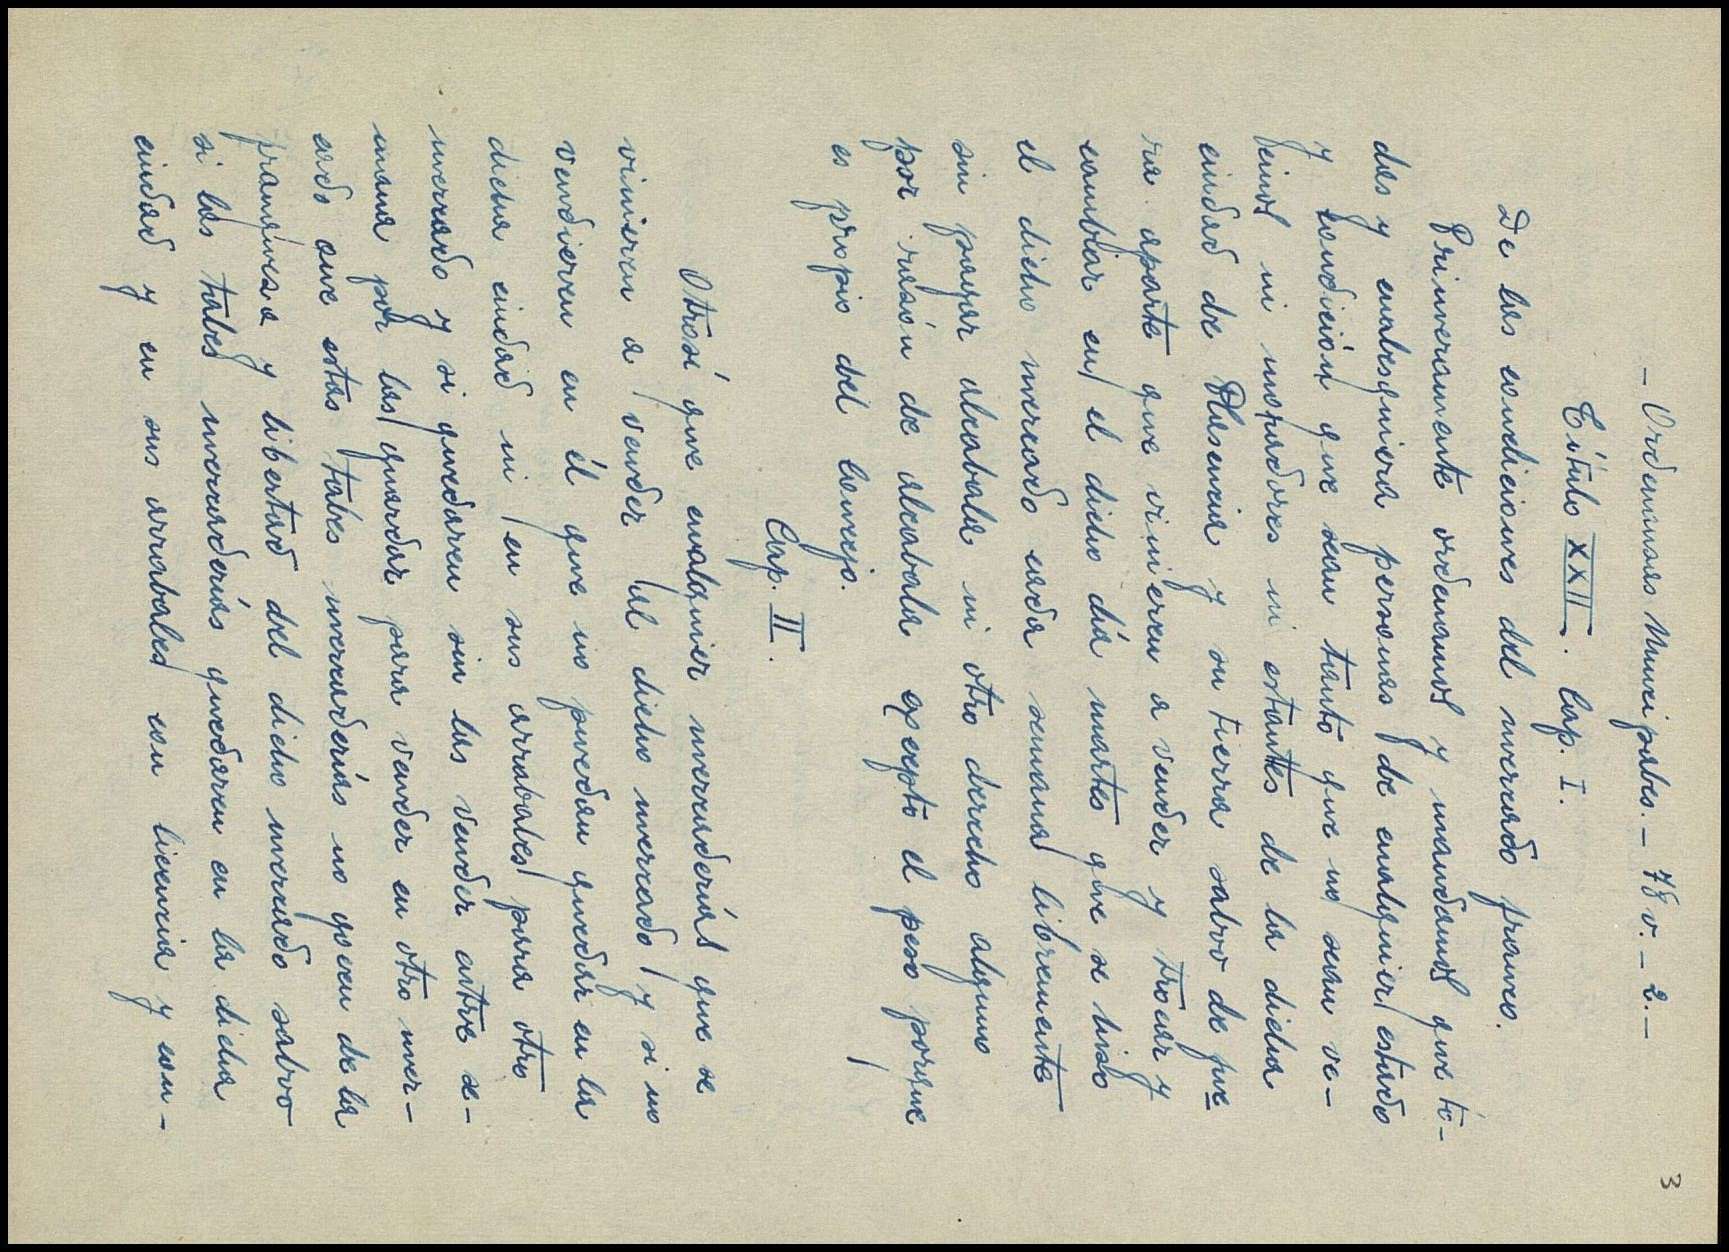 3
- Ordenanzas Municipales. - 78 v. - 2. -
Título XXII. Cap. I.
De las condiciones del mercado franco.
Primeramente ordenamos y mandamos que to-
das y cualesquiera personas de cualquier estado
y condición que sean tanto que no sean ve-
cinos ni moradores ni estantes de la dicha
ciudad de Plasencia y su tierra salvo de fue
ra aparte que vinieren a vender y trocar y
cambiar en el dicho día martes que se hizo
el dicho mercado cada semana libremente
sin pagar alcabala ni otro derecho alguno
por razón de alcabala excepto el peso porque
es propio del Concejo.
Cap. II.
Otrosí que cualquier mercaderías que se
vinieren a vender al dicho mercado y si no
vendieren en él que no puedan quedar en la
dicha ciudad ni en sus arrabales para otro
mercado y si quedaren sin las vender entre se-
mana por las guardar para vender en otro mer-
cado que estas tales mercaderías no gocen de la
franqueza y libertad del dicho mercado salvo
si las tales mercaderías quedaren en la dicha
ciudad y en sus arrabales con licencia y con-